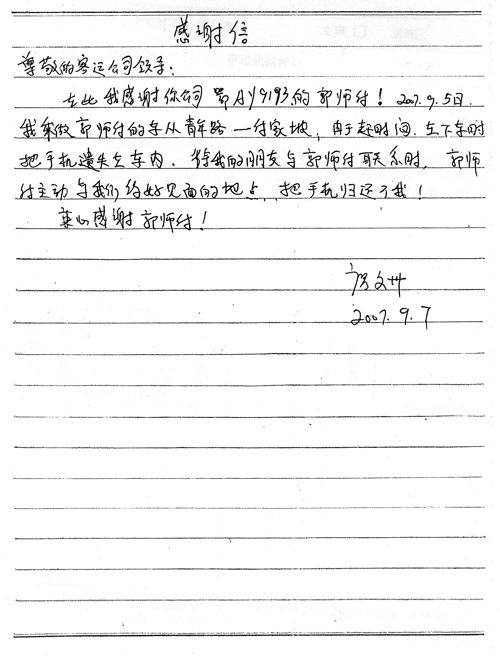 感谢信
尊敬的客运公司领导:
在此我感谢你公司 鄂AY9193的郭师付! 2007.9.5日.
我乘做郭师付的车从青年路—付家坡, 由于赶时间. 在下车时
把手机遗失在车内、待我的朋友与郭师付联系时, 郭师
付主动与我们约好见面的地点, 把手机归还了我!
衷心感谢郭师付!
文卅
2007.9.7